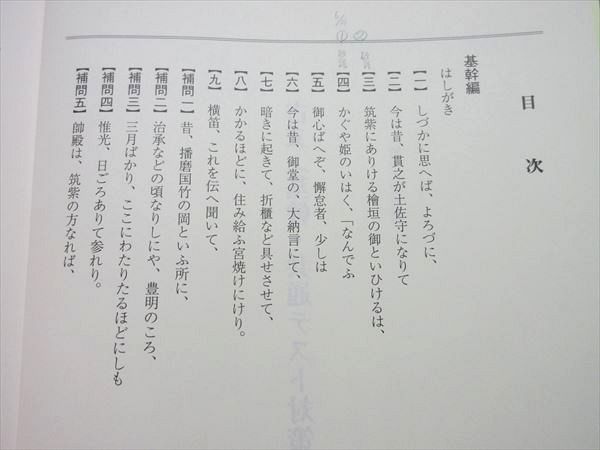 目次
基幹編
はしがき
【一】 しづかに思へば、よろづに、
【二】 今は昔、貫之が土佐守になりて
【三】 筑紫にありける檜垣の御といひけるは、
【四】 かぐや姫のいはく、「なんでふ
【五】 御心ばへぞ、懈怠者、少しは
【六】 今は昔、御堂の、大納言にて、
【七】 暗きに起きて、折櫃など具せさせて、
【八】 かかるほどに、住み給ふ宮焼けにけり。
【九】 横笛、これを伝へ聞いて、
【補問一】 昔、播磨国竹の岡といふ所に、
【補問二】 治承などの頃なりしにや、豊明のころ、
【補問三】 三月ばかり、ここにわたりたるほどにしも
【補問四】 惟光、日ごろありて参れり。
【補問五】 帥殿は、筑紫の方なれば、